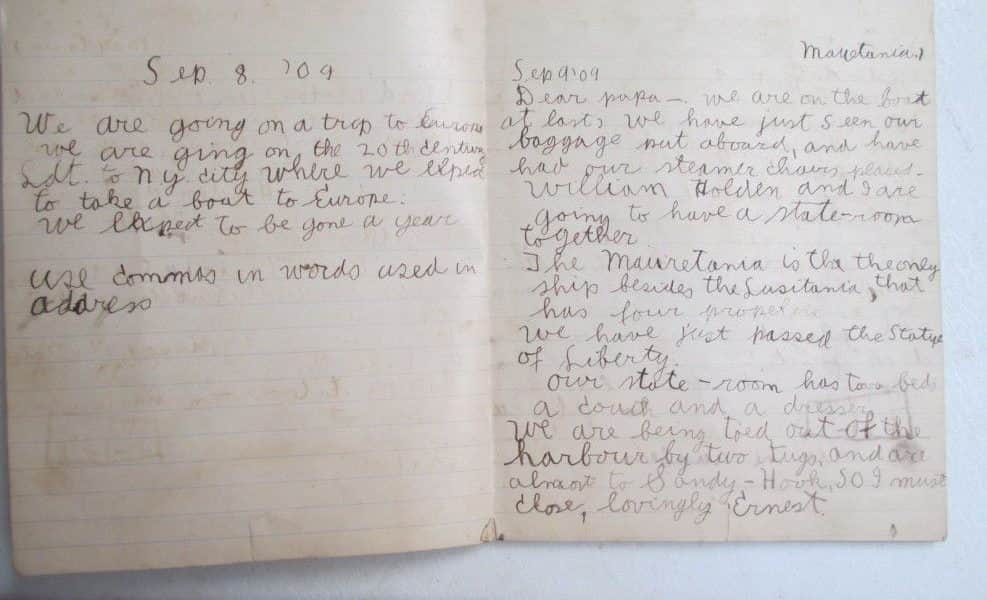 Sep. 8. '09
We are going on a trip to Europe
we are ging on the 20th century
Ldt. to N y. city where we expect
to take a boat to Europe.
We expect to be gone a year
use commas in words used in
address
Mauretania,
Sep 9 '09
Dear papa —. we are on the boat
at last, we have just seen our
baggage put aboard, and have
had our steamer chairs placed.
William Holden and I are
going to have a state-room
together
The Mauretania is tha the only
ship besides the Lusitania, that
has four
We have just passed the Statue
of Liberty.
our state-room has two beds
a couch and a dresser
We are being toed out of the
harbour by two tugs, and are
almost to Sandy-Hook, SO I must
close, lovingly Ernest.